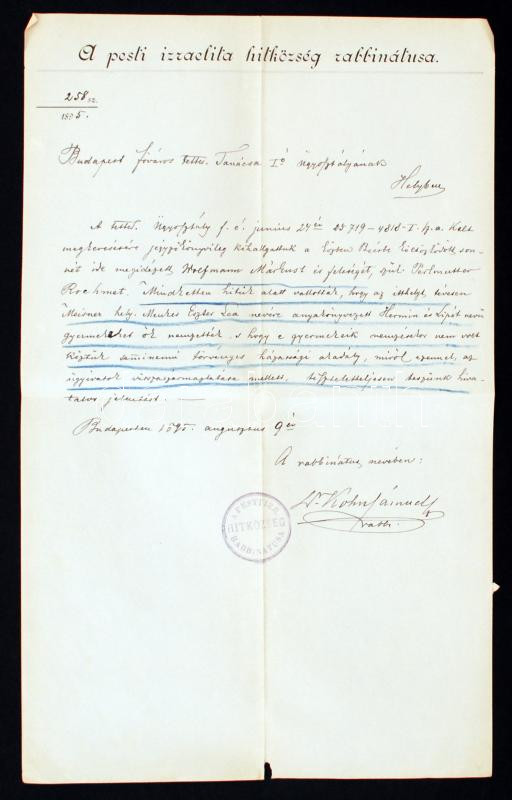 A pesti izraelita hitközség rabbinátusa.
258 sz.
1895.
Budapest főváros tettes. Tanácsa I ő Ügyosztályának
Helyben
A tettes. Ügyosztály f. é. junius 24 én 23719-4818-I. h. a. kelt
megkeresésére jegyzőkönyvileg kihallgattuk a
ide megidézett Wolfmann Márkust és feleségét, szül.
Rochmet. Mindketten hitük alatt vallották, hogy az itthelyt, tévesen
Meisner hely. Menkes Eszter Lea nevére anyakönyvezett Hermin és Lipót nevű
gyermekeket ők nemzették, s hogy e gyermekeik nemzésekor nem volt
köztük semminemű törvényes házassági akadály, miről ezennel, az
ügyiratok visszaszármaztatása mellett, tiszteletteljesen teszünk hiva-
talos jelentést. —
Budapesten 1895. augusztus 9 én
A rabbinátus nevében:
Dr Kohn Sámuel
rabbi.
A PESTI IZR.
HITKÖZSÉG
RABBINATUSA